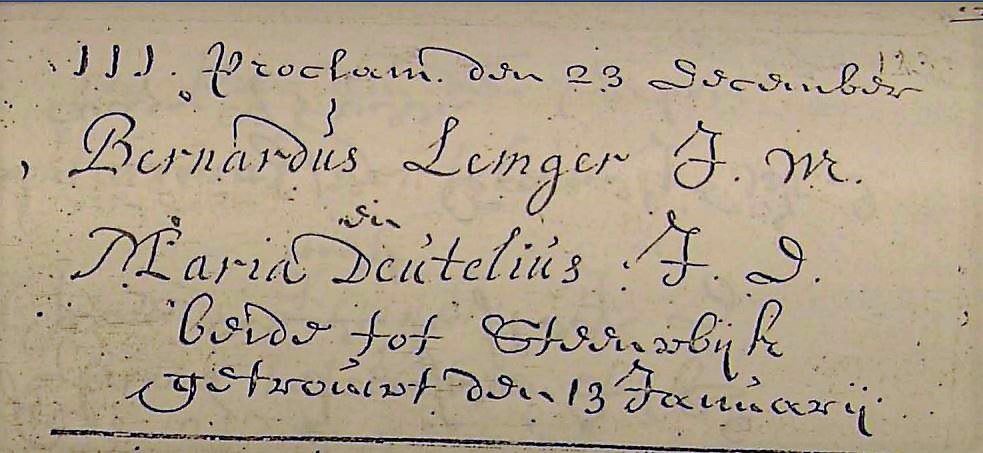 III. Proclam. den 23 December
Bernardus Lemger J. M.
en
Maria Deutelius J. D.
beide tot Steenwijk
getrouwt den 13 Januarij